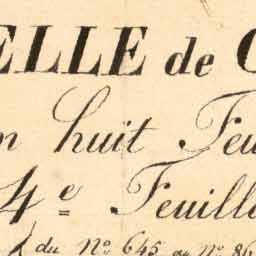 ELLE de
huit Feu
4e Feuill
du No 645 au No 86